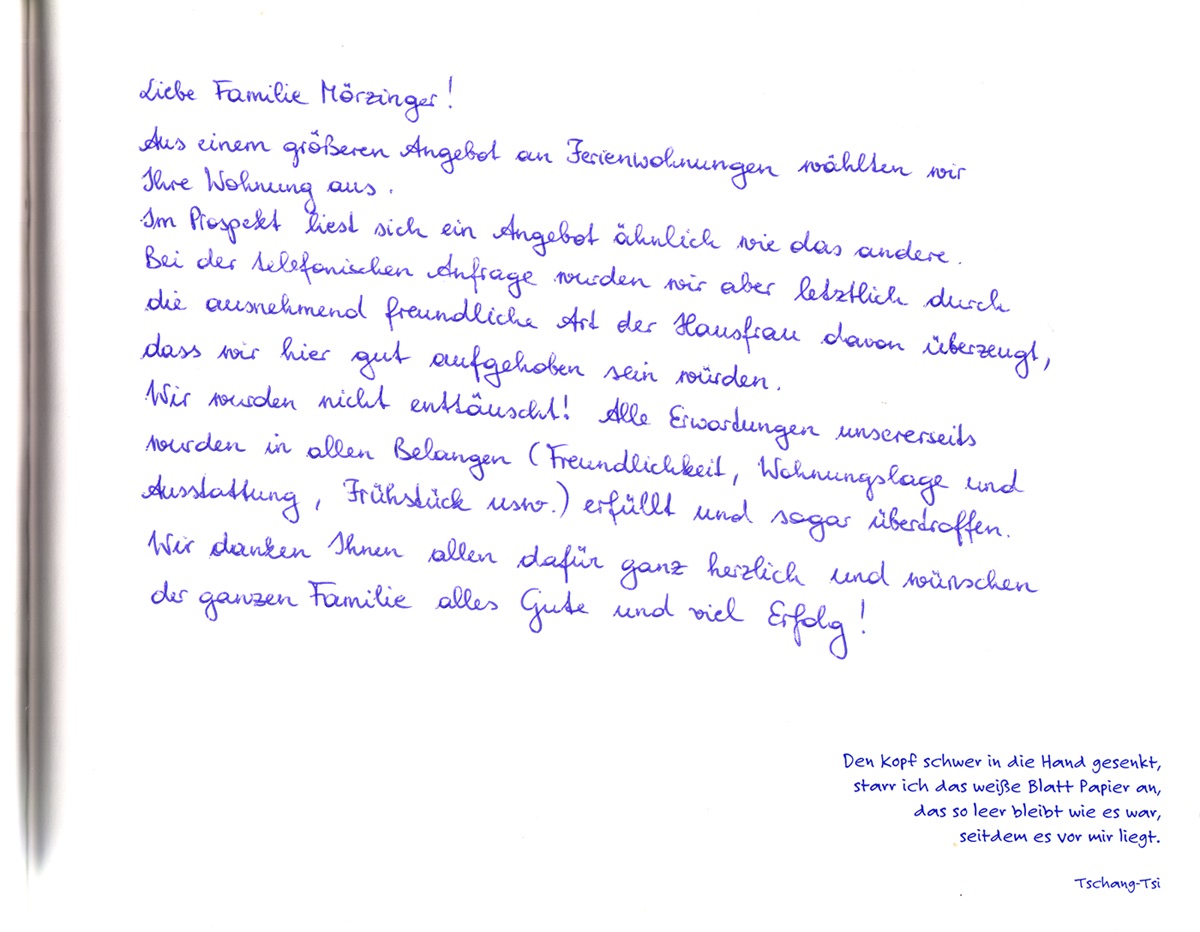 Liebe Familie Mörzinger!
Aus einem größeren Angebot an Ferienwohnungen wählten wir
Ihre Wohnung aus.
Im Prospekt liest sich ein Angebot ähnlich wie das andere.
Bei der telefonischen Anfrage wurden wir aber letztlich durch
die ausnehmend freundliche Art der Hausfrau davon überzeugt,
dass wir hier gut aufgehoben sein würden.
Wir wurden nicht enttäuscht! Alle Erwartungen unsererseits
wurden in allen Belangen (Freundlichkeit, Wohnungslage und
Ausstattung, Frühstück usw.) erfüllt und sogar übertroffen.
Wir danken Ihnen allen dafür ganz herzlich und wünschen
der ganzen Familie alles Gute und viel Erfolg!
Den Kopf schwer in die Hand gesenkt,
starr ich das weiße Blatt Papier an,
das so leer bleibt wie es war,
seitdem es vor mir liegt.
Tschang-Tsi